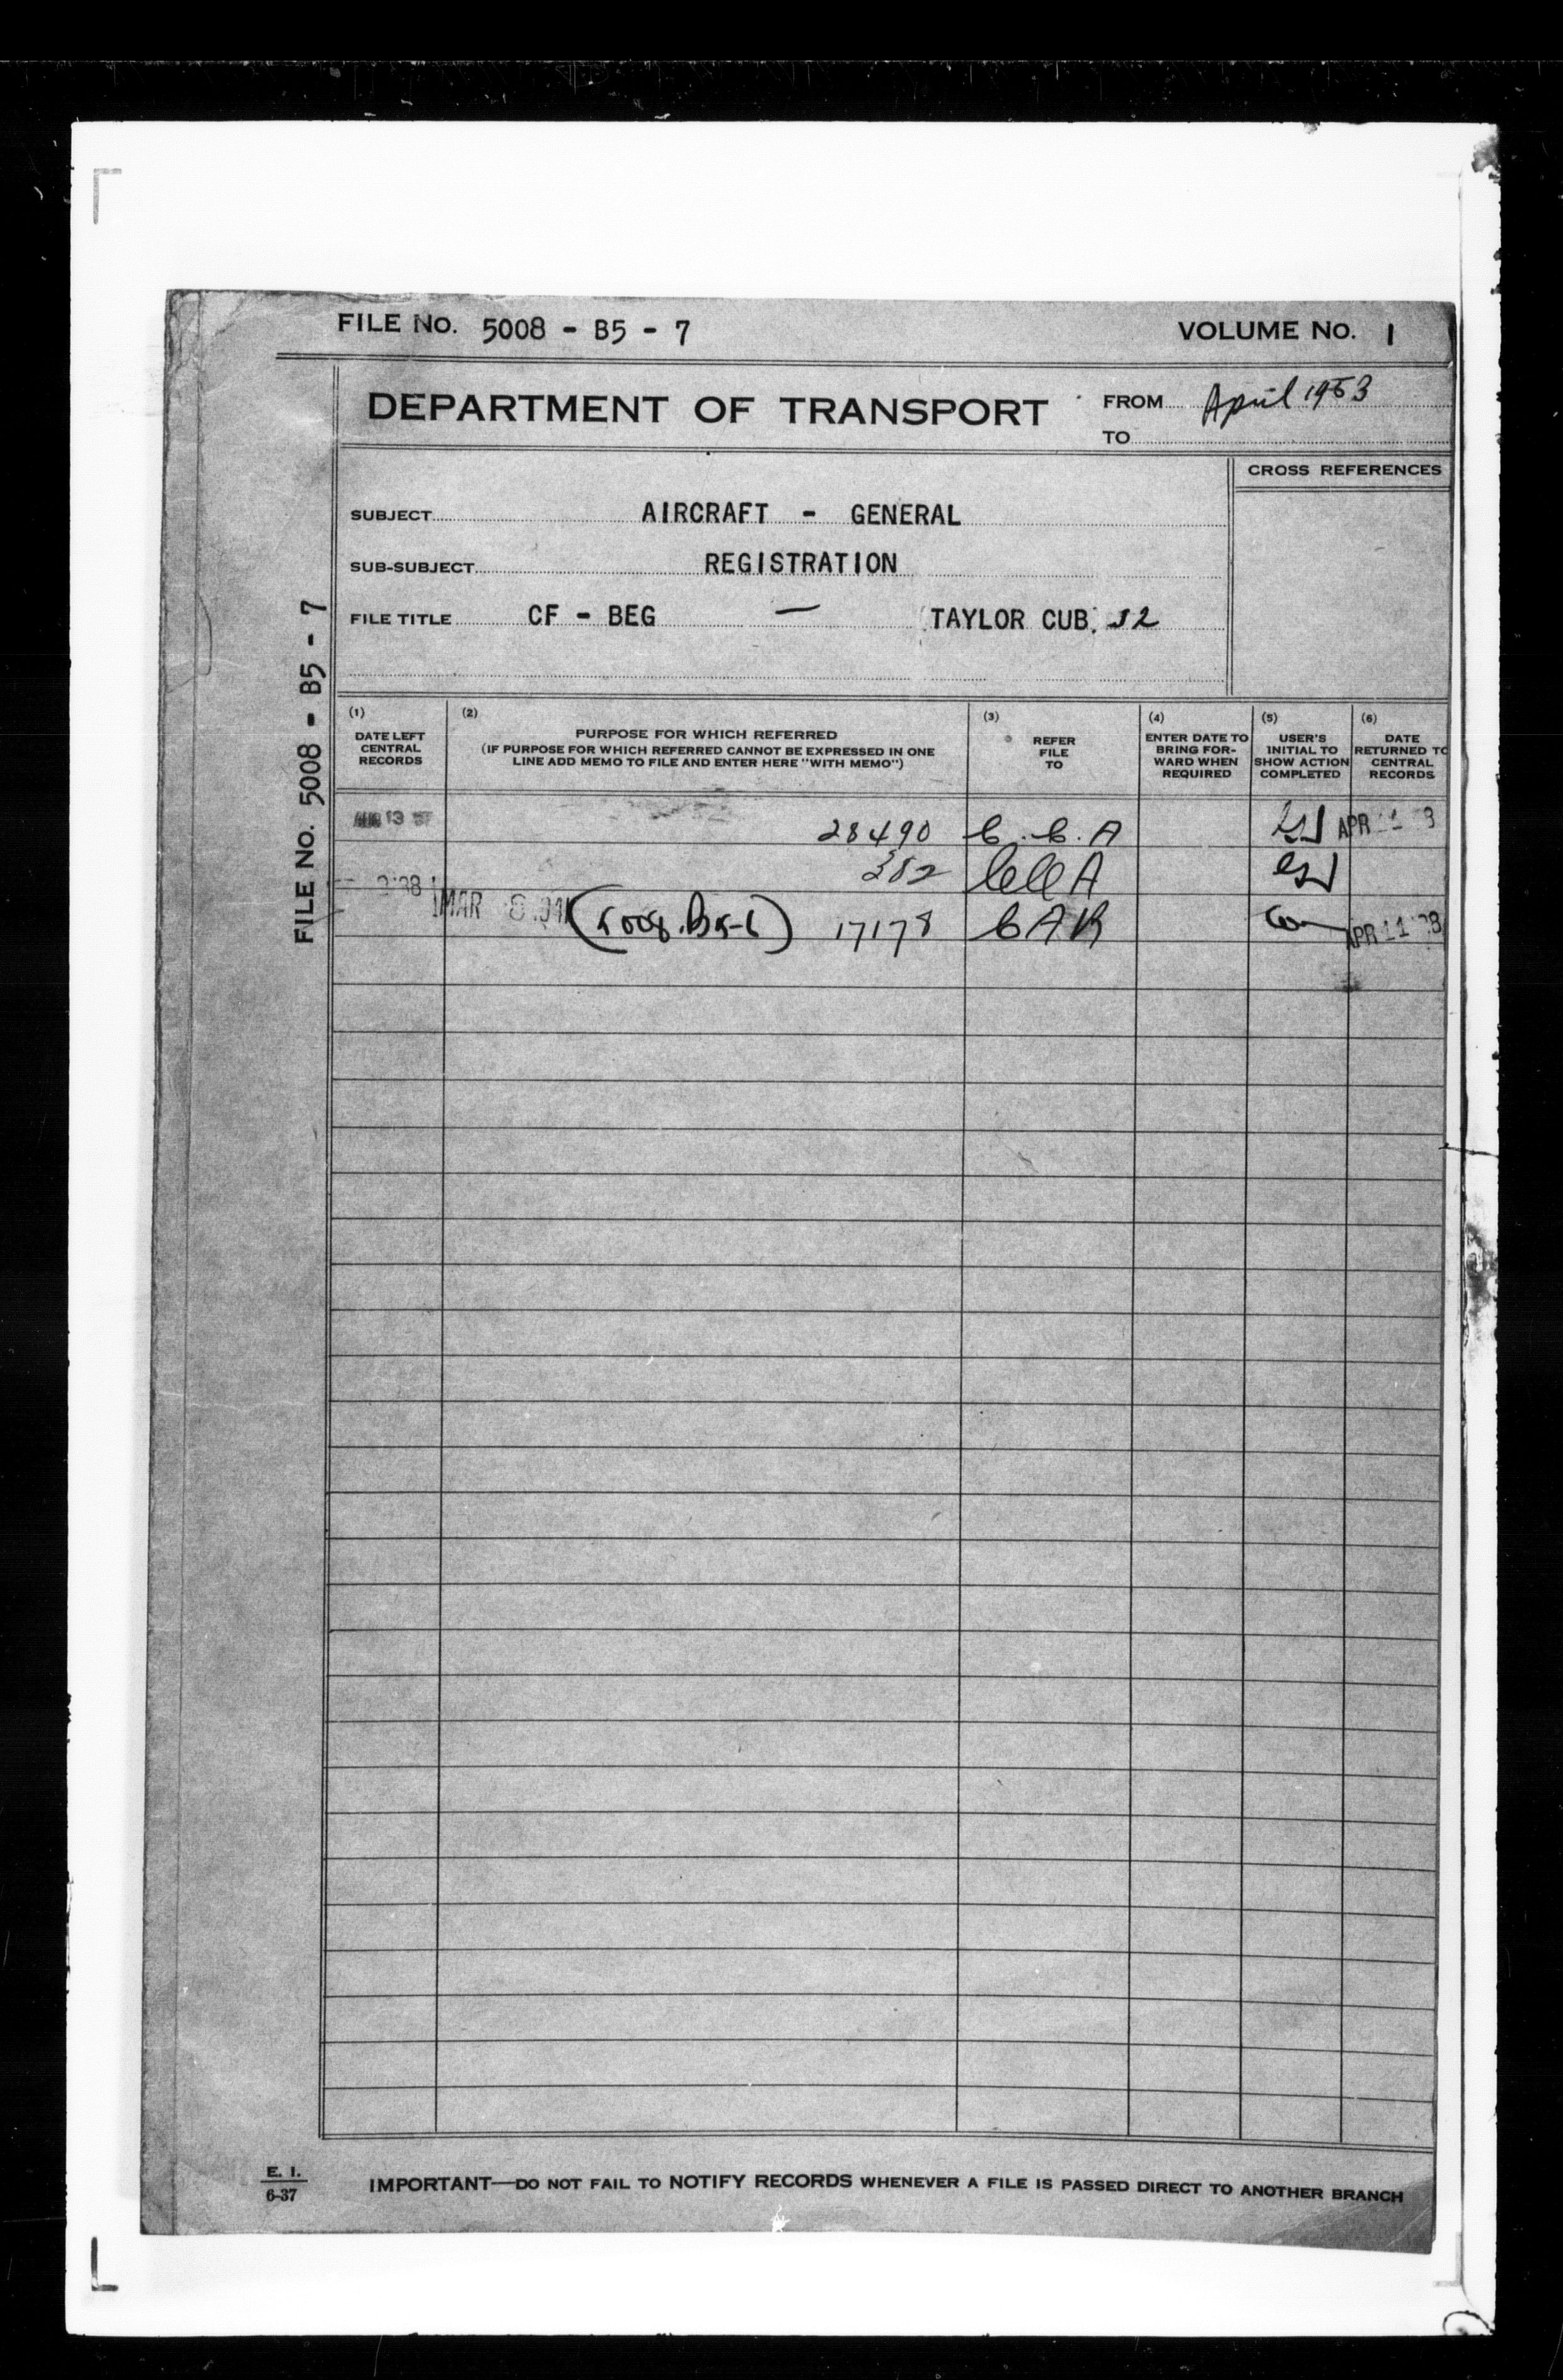 FILE NO. 5008 - B5 - 7
VOLUME NO. 1
DEPARTMENT OF TRANSPORT
FROM April 1953
TO
CROSS REFERENCES
SUBJECT AIRCRAFT - GENERAL
SUB-SUBJECT REGISTRATION
FILE TITLE CF - BEG — TAYLOR CUB. J2
FILE NO. 5008 - B5 - 7
(1) DATE LEFT CENTRAL RECORDS
(2) PURPOSE FOR WHICH REFERRED
(IF PURPOSE FOR WHICH REFERRED CANNOT BE EXPRESSED IN ONE
LINE ADD MEMO TO FILE AND ENTER HERE "WITH MEMO")
(3) REFER FILE TO
(4) ENTER DATE TO BRING FOR-WARD WHEN REQUIRED
(5) USER'S INITIAL TO SHOW ACTION COMPLETED
(6) DATE RETURNED TO CENTRAL RECORDS
28490 C.C.A APR
382 CCA
MAR (5008.B5-6) 17178 CAR APR 11
E. I.
6-37
IMPORTANT—DO NOT FAIL TO NOTIFY RECORDS WHENEVER A FILE IS PASSED DIRECT TO ANOTHER BRANCH